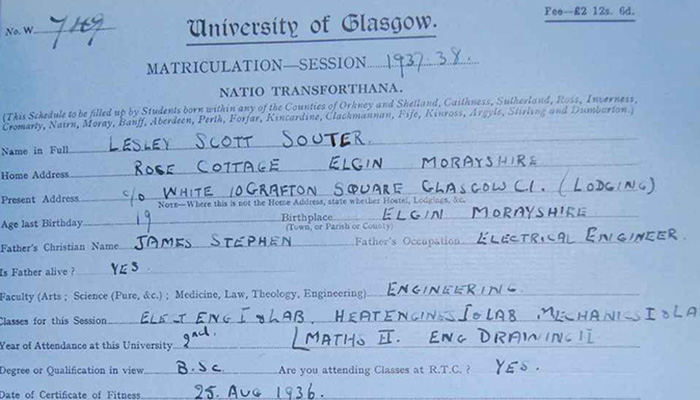 Fee—£2 12s. 6d.
No. W. 7149
University of Glasgow.
MATRICULATION—SESSION 1937-38.
NATIO TRANSFORTHANA.
(This Schedule to be filled up by Students born within any of the Counties of Orkney and Shetland, Caithness, Sutherland, Ross, Inverness,
Cromarty, Nairn, Moray, Banff, Aberdeen, Perth, Forfar, Kincardine, Clackmannan, Fife, Kinross, Argyle, Stirling and Dumbarton.)
Name in Full LESLEY SCOTT SOUTER.
Home Address ROSE COTTAGE ELGIN MORAYSHIRE
Present Address c/o WHITE 10 GRAFTON SQUARE GLASGOW C1. (LODGING)
NOTE—Where this is not the Home Address, state whether Hostel, Lodgings, &c.
Age last Birthday 19 Birthplace ELGIN MORAYSHIRE
(Town, or Parish or County)
Father's Christian Name JAMES STEPHEN Father's Occupation ELECTRICAL ENGINEER.
Is Father alive? YES
Faculty (Arts; Science (Pure, &c.); Medicine, Law, Theology, Engineering) ENGINEERING.
Classes for this Session ELECT ENG I & LAB. HEAT ENGINES I & LAB MECHANICS I & LA
Year of Attendance at this University 2nd. MATHS II. ENG DRAWING II
Degree or Qualification in view B.Sc Are you attending Classes at R.T.C.? YES.
Date of Certificate of Fitness 25. AUG 1936.